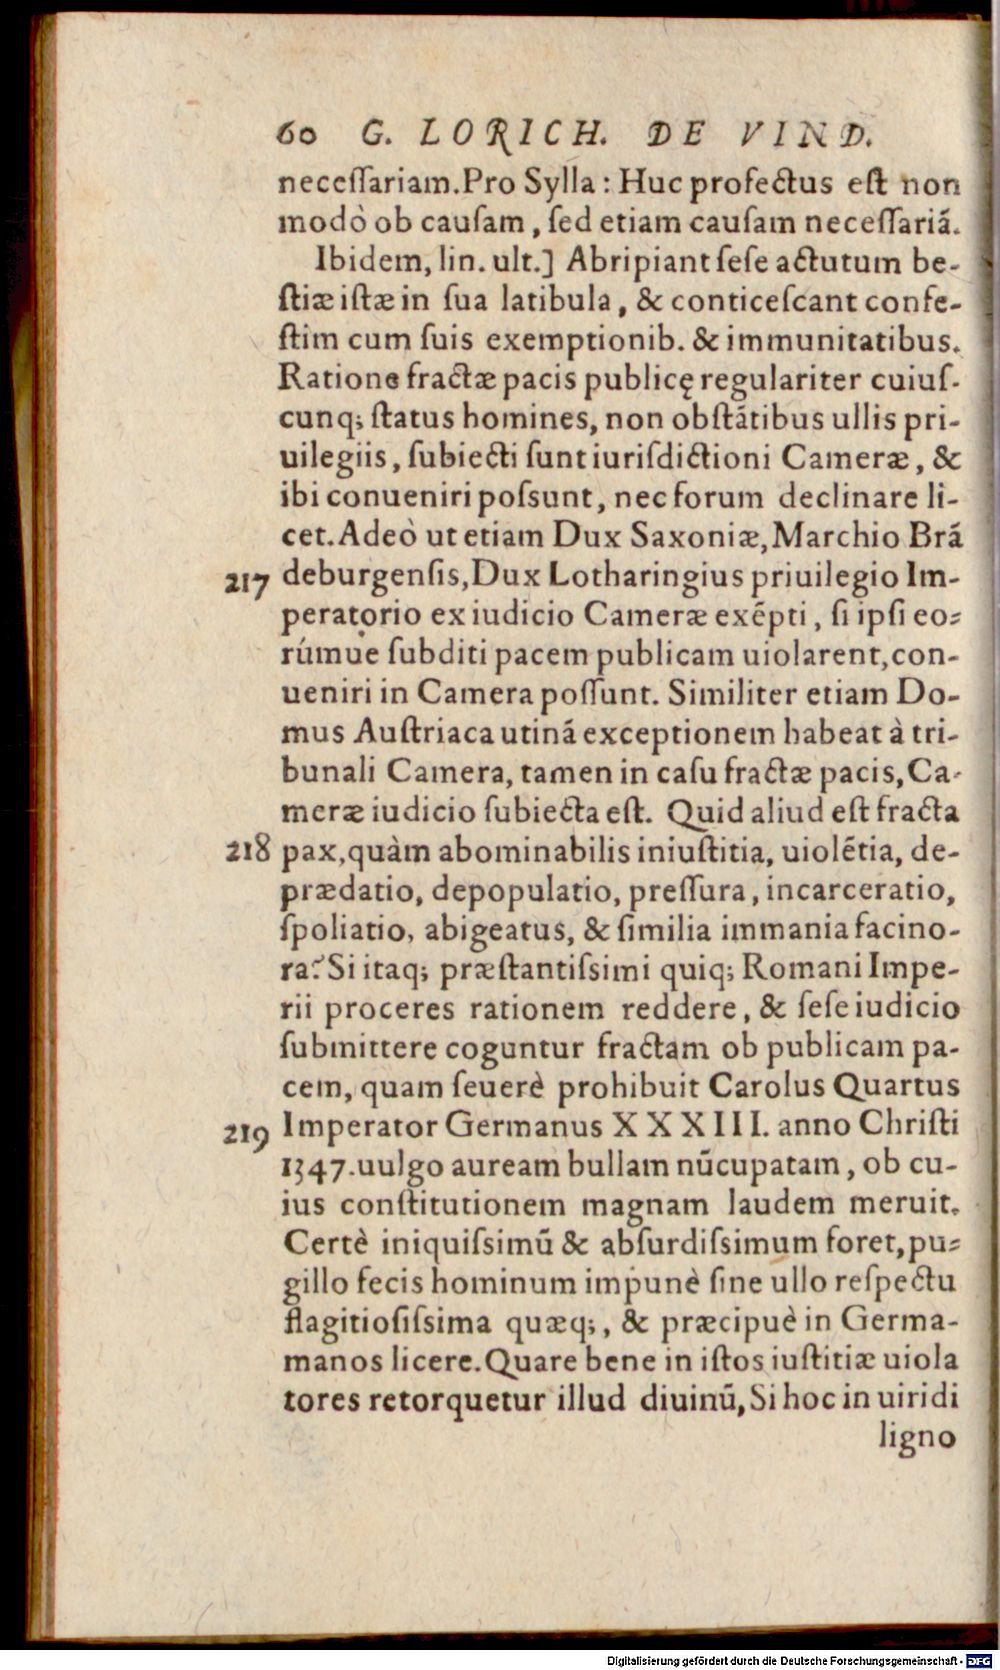 60 G. LORICH. DE VIND.
neceſſariam. Pro Sylla : Huc profectus eſt non
modò ob cauſam , ſed etiam cauſam neceſſariã.
Ibidem, lin. ult.] Abripiant ſeſe actutum be-
ſtiæ iſtæ in ſua latibula , & conticeſcant confe-
ſtim cum ſuis exemptionib. & immunitatibus.
Ratione fractæ pacis publicę regulariter cuiuſ-
cunq; ſtatus homines, non obſtãtibus ullis pri-
uilegiis, ſubiecti ſunt iuriſdictioni Cameræ, &
ibi conueniri poſsunt, nec forum declinare li-
cet. Adeò ut etiam Dux Saxoniæ, Marchio Brã
217 deburgenſis, Dux Lotharingius priuilegio Im-
peratorio ex iudicio Cameræ exẽpti , ſi ipſi eo-
rúmue ſubditi pacem publicam uiolarent, con-
ueniri in Camera poſſunt. Similiter etiam Do-
mus Auſtriaca utinã exceptionem habeat à tri-
bunali Camera, tamen in caſu fractæ pacis, Ca-
meræ iudicio ſubiecta eſt. Quid aliud eſt fracta
218 pax, quàm abominabilis iniuſtitia, uiolẽtia, de-
prædatio, depopulatio, preſſura, incarceratio,
ſpoliatio, abigeatus, & ſimilia immania facino-
ra? Si itaq; præſtantiſsimi quiq; Romani Impe-
rii proceres rationem reddere, & ſeſe iudicio
ſubmittere coguntur fractam ob publicam pa-
cem, quam ſeuerè prohibuit Carolus Quartus
219 Imperator Germanus XXXIII. anno Chriſti
1347. uulgo auream bullam nũcupatam, ob cu-
ius conſtitutionem magnam laudem meruit.
Certè iniquiſsimũ & abſurdiſsimum foret, pu-
gillo fecis hominum impunè ſine ullo reſpectu
flagitioſiſsima quæq; , & præcipuè in Germa-
manos licere. Quare bene in iſtos iuſtitiæ uiola
tores retorquetur illud diuinũ, Si hoc in uiridi
ligno
Digitalisierung gefördert durch die Deutsche Forschungsgemeinschaft - DFG